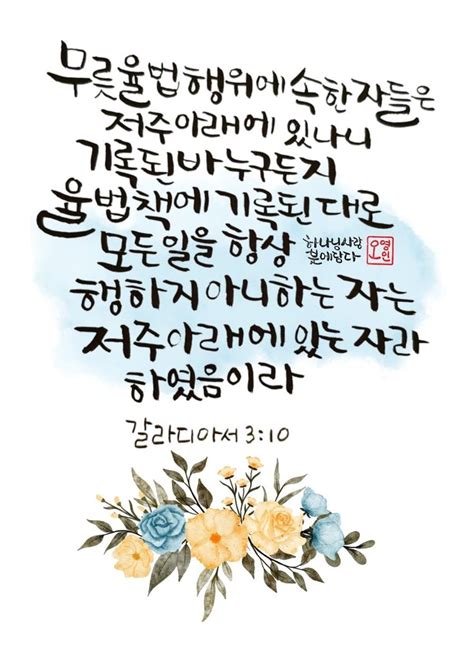 무릇율법행위에 속한자들은
저주아래에 있나니
기록된바누구든지
율법책에기록된대로
모든일을 항상
하나님사랑
붓에담다
오영인
행하지아니하는 자는
저주아래에있는자라
하였음이라
갈라디아서 3:10